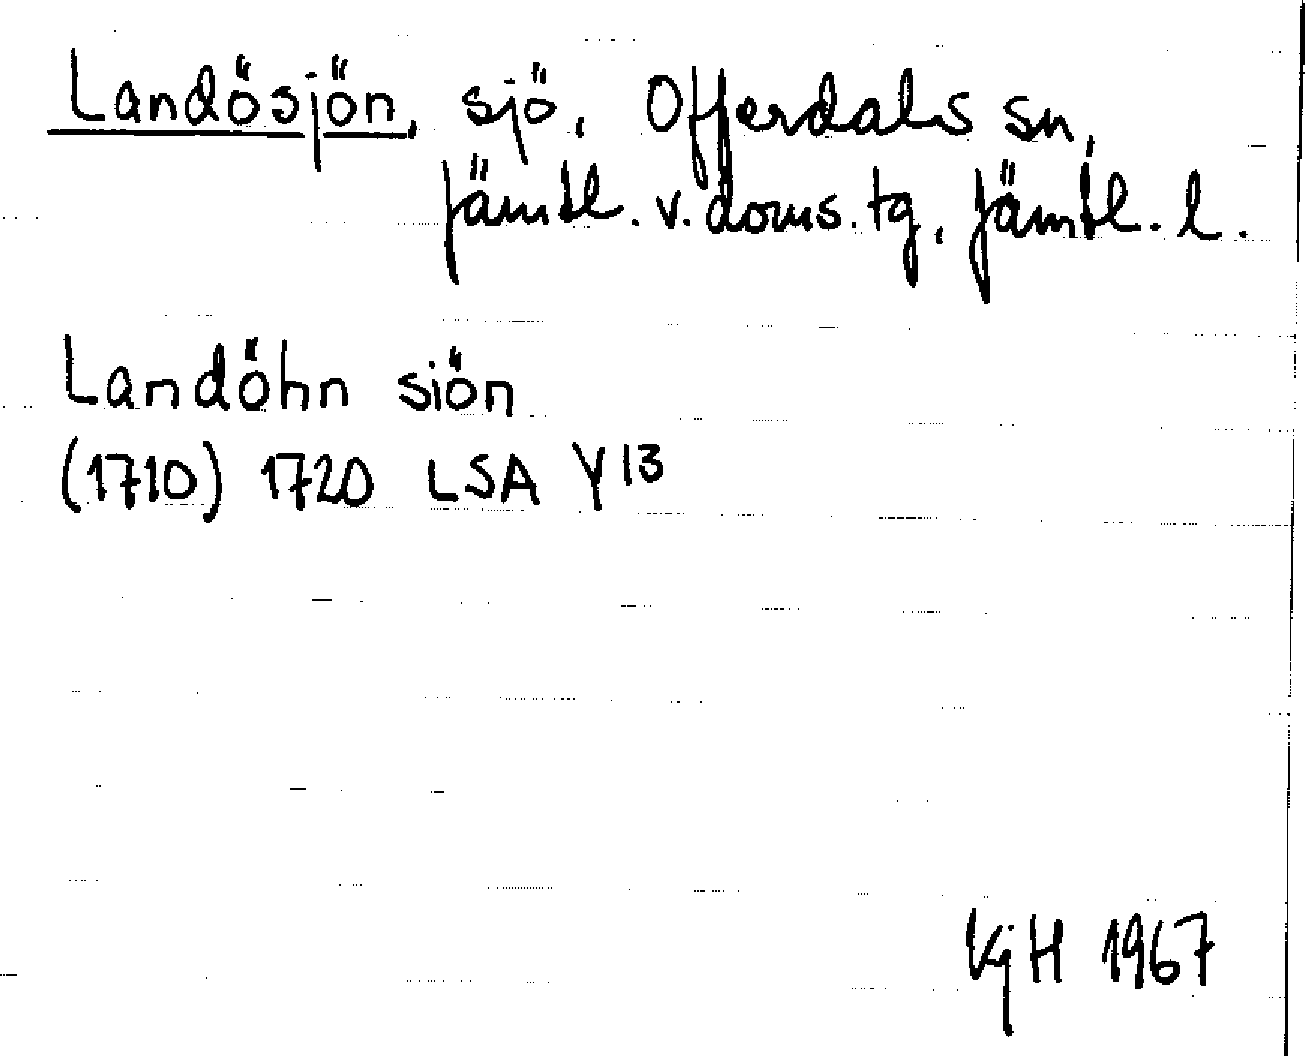 Landösjön, sjö, Offerdals sn,
Jämtl. v. doms. tg, Jämtl. l.
Landöhn siön
(1710) 1720 LSA Y13
KjH 1967